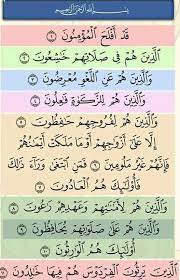 بسم الله الرحمن الرحيم
قَدْ أَفْلَحَ ٱلْمُؤْمِنُونَ ١
ٱلَّذِينَ هُمْ فِى صَلَاتِهِمْ خَٰشِعُونَ ٢
وَٱلَّذِينَ هُمْ عَنِ ٱللَّغْوِ مُعْرِضُونَ ٣
وَٱلَّذِينَ هُمْ لِلزَّكَوٰةِ فَٰعِلُونَ ٤
وَٱلَّذِينَ هُمْ لِفُرُوجِهِمْ حَٰفِظُونَ ٥
إِلَّا عَلَىٰٓ أَزْوَٰجِهِمْ أَوْ مَا مَلَكَتْ أَيْمَٰنُهُمْ
فَإِنَّهُمْ غَيْرُ مَلُومِينَ ٦ فَمَنِ ٱبْتَغَىٰ وَرَآءَ ذَٰلِكَ
فَأُو۟لَٰٓئِكَ هُمُ ٱلْعَادُونَ ٧
وَٱلَّذِينَ هُمْ لِأَمَٰنَٰتِهِمْ وَعَهْدِهِمْ رَٰعُونَ ٨
وَٱلَّذِينَ هُمْ عَلَىٰ صَلَوَٰتِهِمْ يُحَافِظُونَ ٩
أُو۟لَٰٓئِكَ هُمُ ٱلْوَٰرِثُونَ ١٠
ٱلَّذِينَ يَرِثُونَ ٱلْفِرْدَوْسَ هُمْ فِيهَا خَٰلِدُونَ